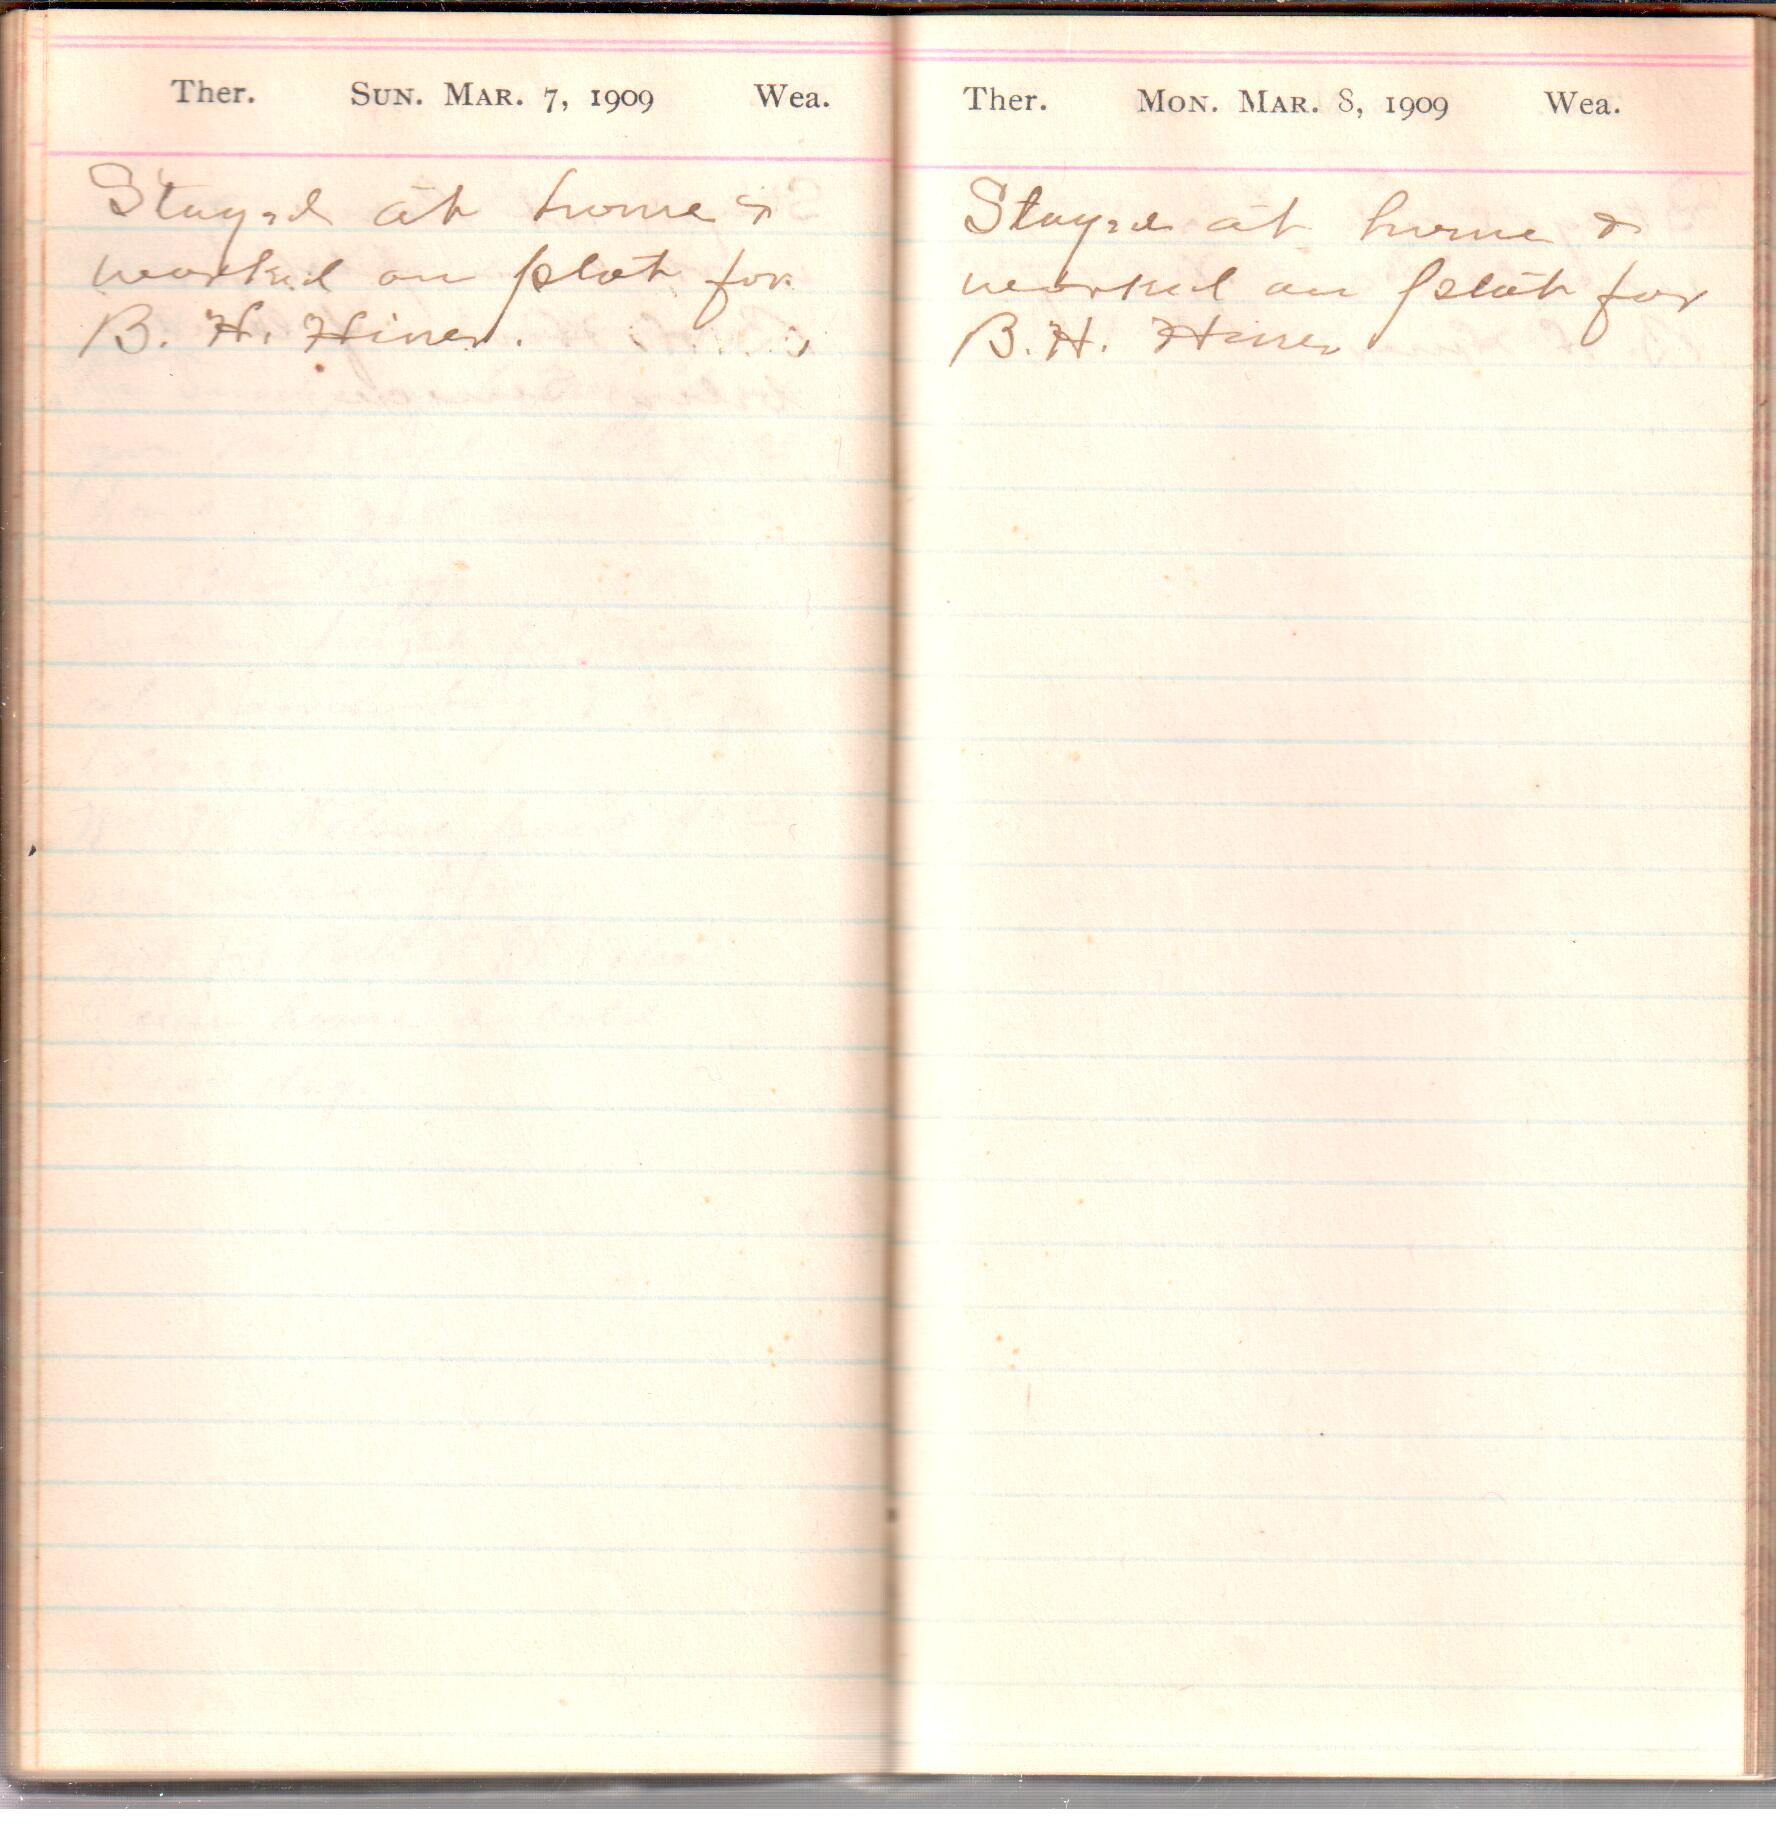 Ther. SUN. MAR. 7, 1909 Wea.
Stayed at home &
worked on plat for
B. H. Hiner.
Ther. MON. MAR. 8, 1909 Wea.
Stayed at home &
worked on plat for
B. H. Hiner